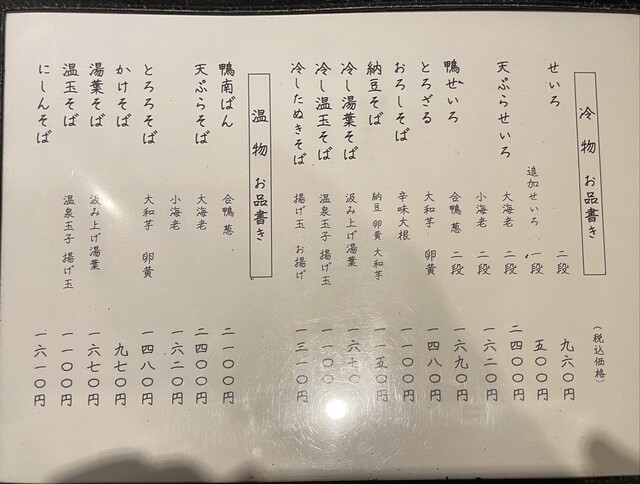 冷物 お品書き
(税込価格)
せいろ 二段 九六〇円
追加せいろ 一段 五〇〇円
天ぷらせいろ 大海老 二段 二四〇〇円
小海老 二段 一六二〇円
鴨せいろ 合鴨 葱 二段 一六九〇円
とろざる 大和芋 卵黄 一四八〇円
おろしそば 辛味大根 一一〇〇円
納豆そば 納豆 卵黄 大和芋 一一五〇円
冷し湯葉そば 汲み上げ湯葉 一六七〇円
冷し温玉そば 温泉玉子 揚げ玉 一一〇〇円
冷したぬきそば 揚げ玉 お揚げ 一三一〇円
温物 お品書き
鴨南ばん 合鴨 葱 二一〇〇円
天ぷらそば 大海老 二四〇〇円
小海老 一六二〇円
とろろそば 大和芋 卵黄 一四八〇円
かけそば 九七〇円
湯葉そば 汲み上げ湯葉 一六七〇円
温玉そば 温泉玉子 揚げ玉 一一〇〇円
にしんそば 一六一〇円